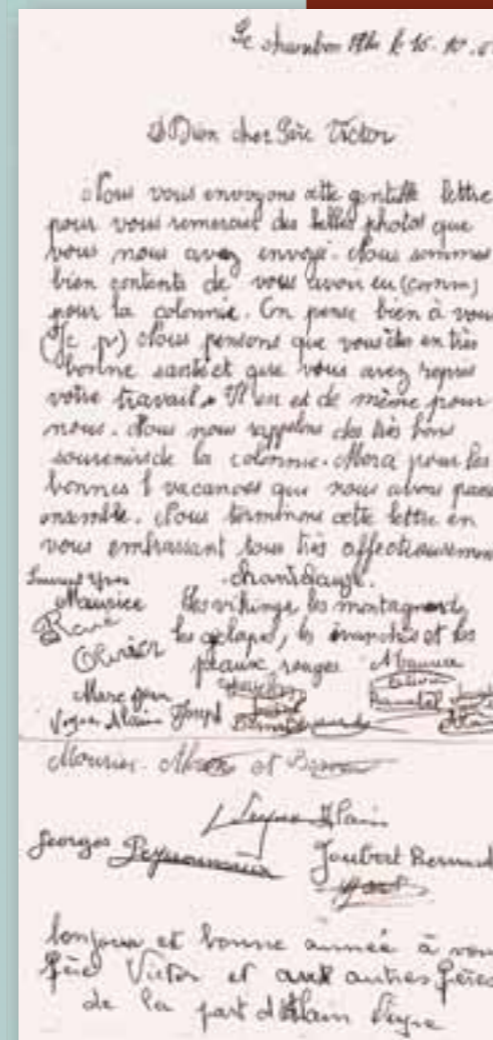 Le chambon le 16. 10.
Mon cher Père Victor
Nous vous envoyons cette gentille lettre
pour vous remercier des belles photos que
vous nous avez envoyé. Nous sommes
bien contents de vous avoir eu (comm)
pour la colonnie. On pense bien à vous
Nous pensons que vous êtes en très
bonne santé et que vous avez repris
votre travail. Il en est de même pour
nous. Nous nous rappelons des très bons
souvenirs de la colonnie. Merci pour les
bonnes vacances que nous avons passé
ensemble. Nous terminons cette lettre en
vous embrassant tous très affectueusement
chantelauze.
Maurice les vikings les montagnards
René les et les
Olivier peaux rouges Maurice
Marc Jean
Veyre Alain Joseph
Mourier
Veyre Alain
Georges Joubert Bernard
bonjour et bonne année à vous
Père Victor et aux autres frères
de la part d'Alain Veyre